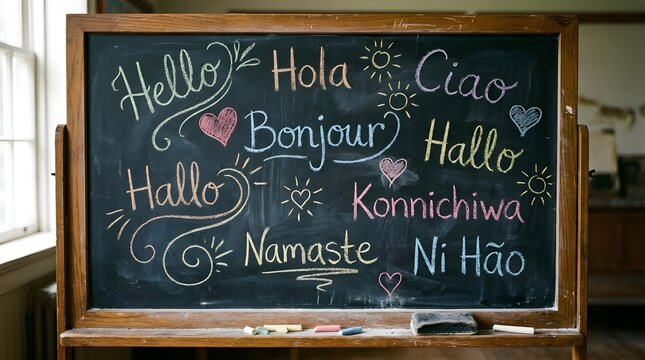 Hello
Hola
Ciao
Bonjour
Hallo
Hallo
Konnichiwa
Namaste
Ni Hão